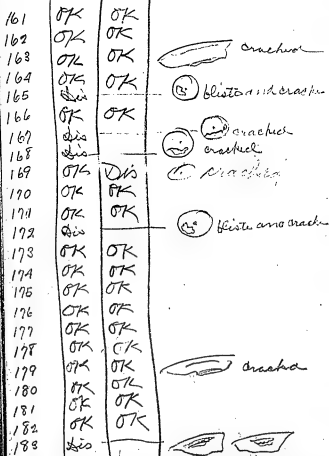 161 OK OK
162 OK OK
163 OK OK cracked
164 OK OK
165 Dis blists and cracke
166 OK OK
167 Dis cracked
168 Dis cracked
169 OK Dis cracked
170 OK OK
171 OK OK
172 Dis bliste and cracke
173 OK OK
174 OK OK
175 OK OK
176 OK OK
177 OK OK
178 OK OK
179 OK OK cracked
180 OK OK
181 OK OK
182 OK OK
183 Dis